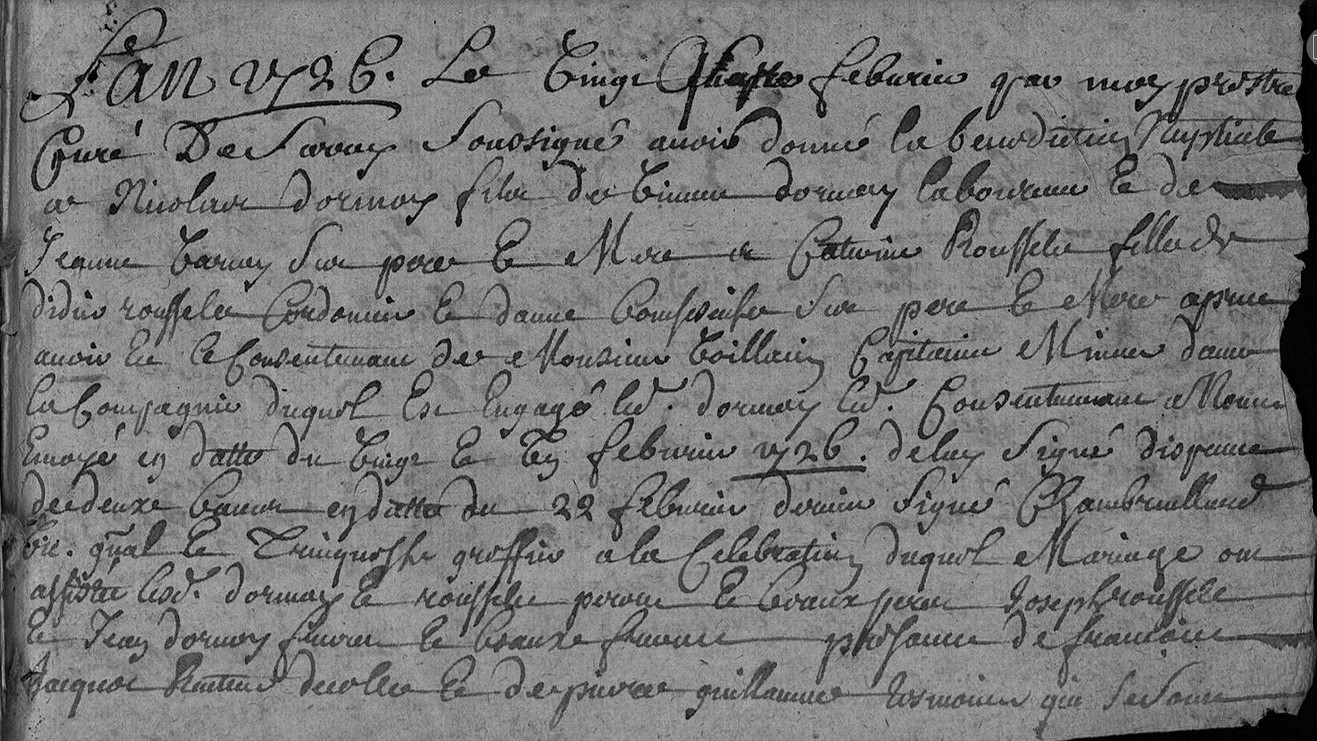 L'an 1726. Le vingt febvrier par moy prestre
Curé De Soussigné avoir donné la benediction Nuptiale
a Nicolas dormoy fils de dormoy laboureur et de
Jeanne ses pere et Mere et Catherine Rousselle fille de
didier rousselle Cordonier et d'anne ses pere et Mere apres
avoir eu le Consentement de Monsieur Capitaine dans
la Compagnie duquel Est Engagé led. dormoy led. Consentement a Nous
Envoyé en datte du vingt et un febvrier 1726. de luy Signé dispence
de deux bancs en datte du 22 febvrier dernier Signé
vic. gñal et greffier a la Celebration duquel Mariage ont
assisté lesd. dormoy et rousselle peres et beaux peres Joseph rousselle
et Jean dormoy freres et beaux freres presence de francois
Jacques d'ecolle et de pierre guillaume tesmoins qui se sont